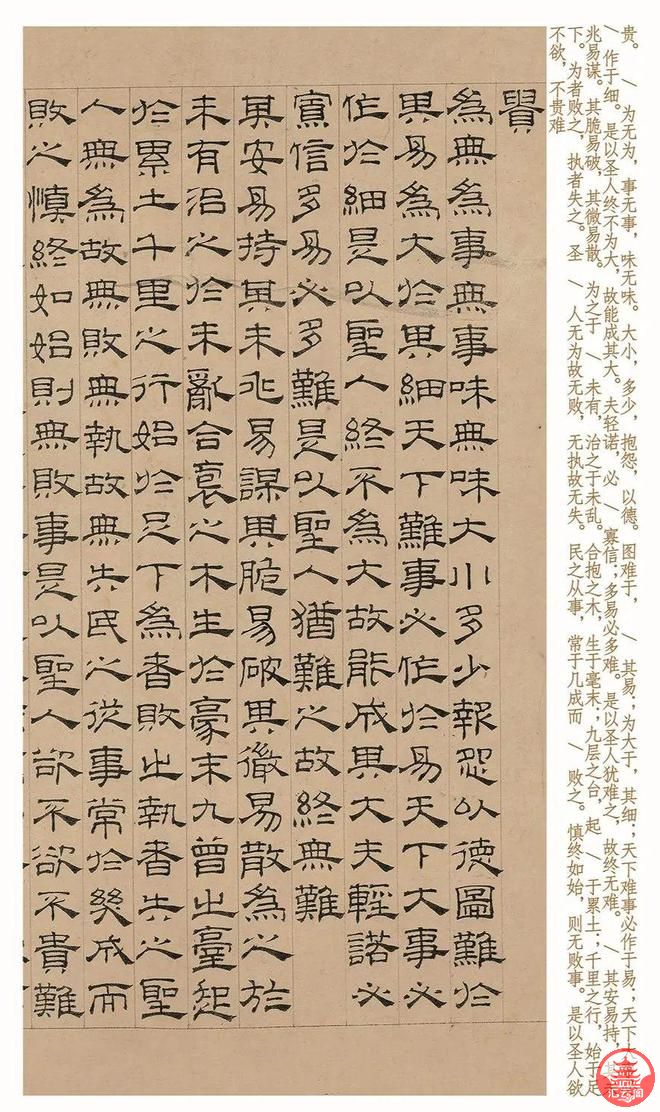 贵。 \ 为无为，事无事，味无味。大小，多少，抱怨，以德。图难于， \ 其易；为大于，其细；天下难事必作于易；天下
\ 作于细。是以圣人终不为大，故能成其大。夫轻诺，必 \ 寡信；多易必多难。是以圣人犹难之，故终无难。 \ 其安易持，
兆易谋。其脆易破，其微易散。为之于 \ 未有，治之于未乱。合抱之木，生于毫末；九层之台，起 \ 于累土；千里之行，始于足
下。为者败之，执者失之。圣 \ 人无为故无败，无执故无失。民之从事，常于几成而 \ 败之。慎终如始，则无败事。是以圣人欲
不欲，不贵难
貴
為無為事無事味無味大小多少報怨以德圖難於
其易為大於其細天下難事必作於易天下大事必
作於細是以聖人終不為大故能成其大夫輕諾必
寡信多易必多難是以聖人猶難之故終無難
其安易持其未兆易謀其脆易破其微易散為之於
未有治之於未亂合裒之木生於豪末九曾之臺起
於累土千里之行始於足下為者敗之執者失之聖
人無為故無敗無執故無失民之從事常於幾成而
敗之慎終如始則無敗事是以聖人欲不欲不貴難
汇云阁